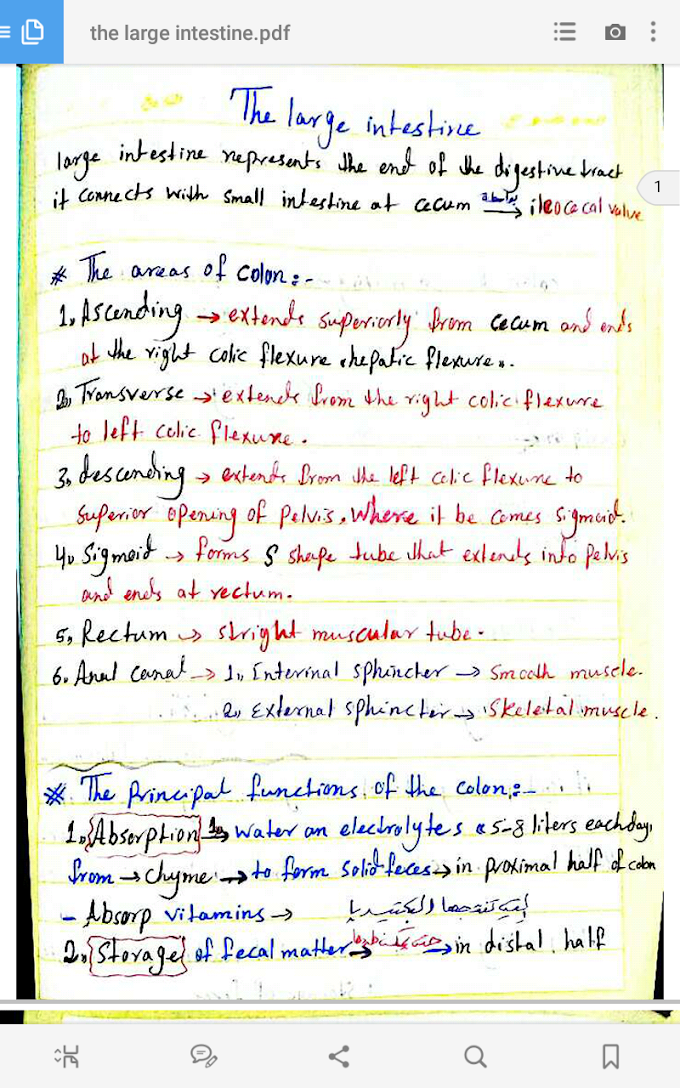 the large intestine.pdf
The large intestine
large intestine represents the end of the digestive tract
1
it connects with small intestine at cecum بواسطة → ileocecal valve
* The areas of colon:-
1, Ascending → extends superiorly from cecum and ends
at the right colic flexure "hepatic flexure".
2, Transverse → extends from the right colic flexure
to left colic flexure.
3, descending → extends from the left colic flexure to
superior opening of pelvis, where it be comes sigmoid.
4, Sigmoid → forms S shape tube that extends into pelvis
and ends at rectum.
5, Rectum → stright muscular tube.
6. Anal canal → 1, Enterinal sphincter → smooth muscle.
2, External sphincter → Skeletal muscle.
* The principal functions of the colon:-
1, Absorption → water an electrolytes "5-8 liters each day,
from → chyme → to form solid feces → in proximal half of colon
- Absorp vitamins → التي تنتجها البكتيريا
2, Storage of fecal matter → → in distal half